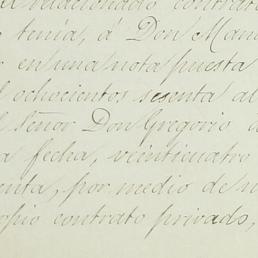 relacionado contrato
tenía, á Don Manu
en una nota puesta
ochocientos sesenta al
señor Don Gregorio
a fecha, veinticuatro
enta, por medio de u
opio contrato privado,